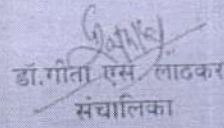 डॉ.गीता एस. लाठकर
संचालिका